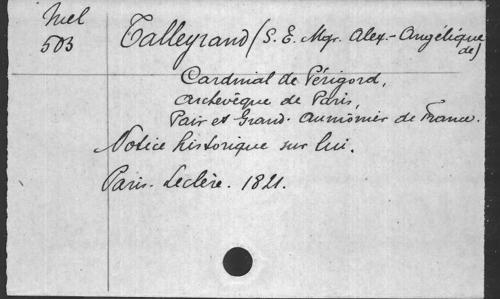 Mel
503
Talleyrand (S. E. Mgr. Alex.-Angélique
de)
Cardinal de Périgord,
Archevêque de Paris,
Pair et Grand-Aumônier de France.
Notice historique sur lui.
Paris. Leclère. 1821.